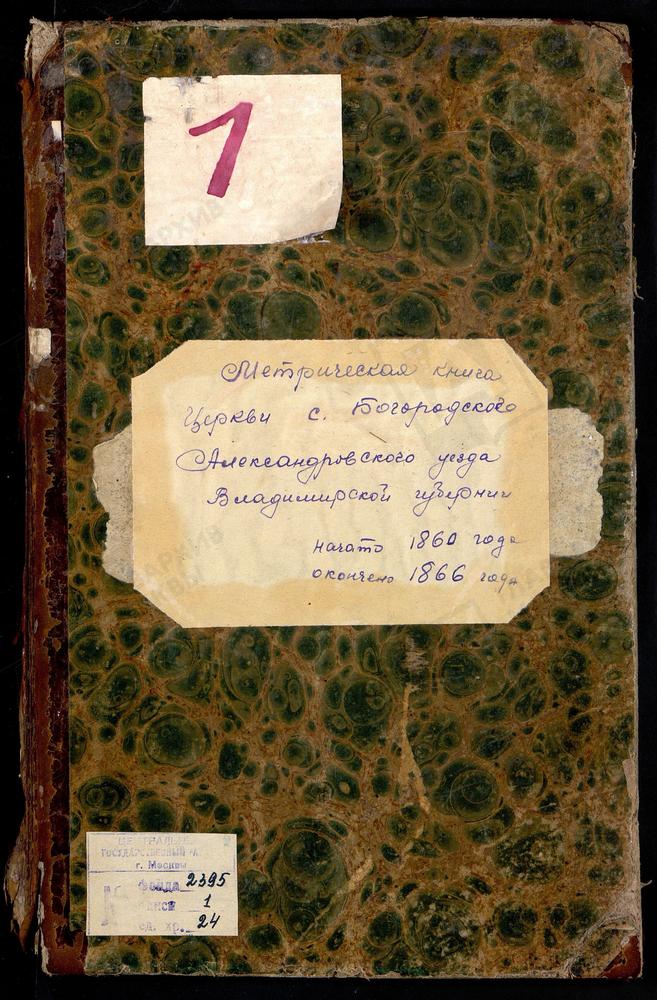 1
Метрическая книга
Церкви с. Богородского
Александровского уезда
Владимирской губернии
начато 1860 года
окончено 1866 года
ГОСУДАРСТВЕННЫЙ
г. Москвы
Фонда 2395
1
ед. хр. 24